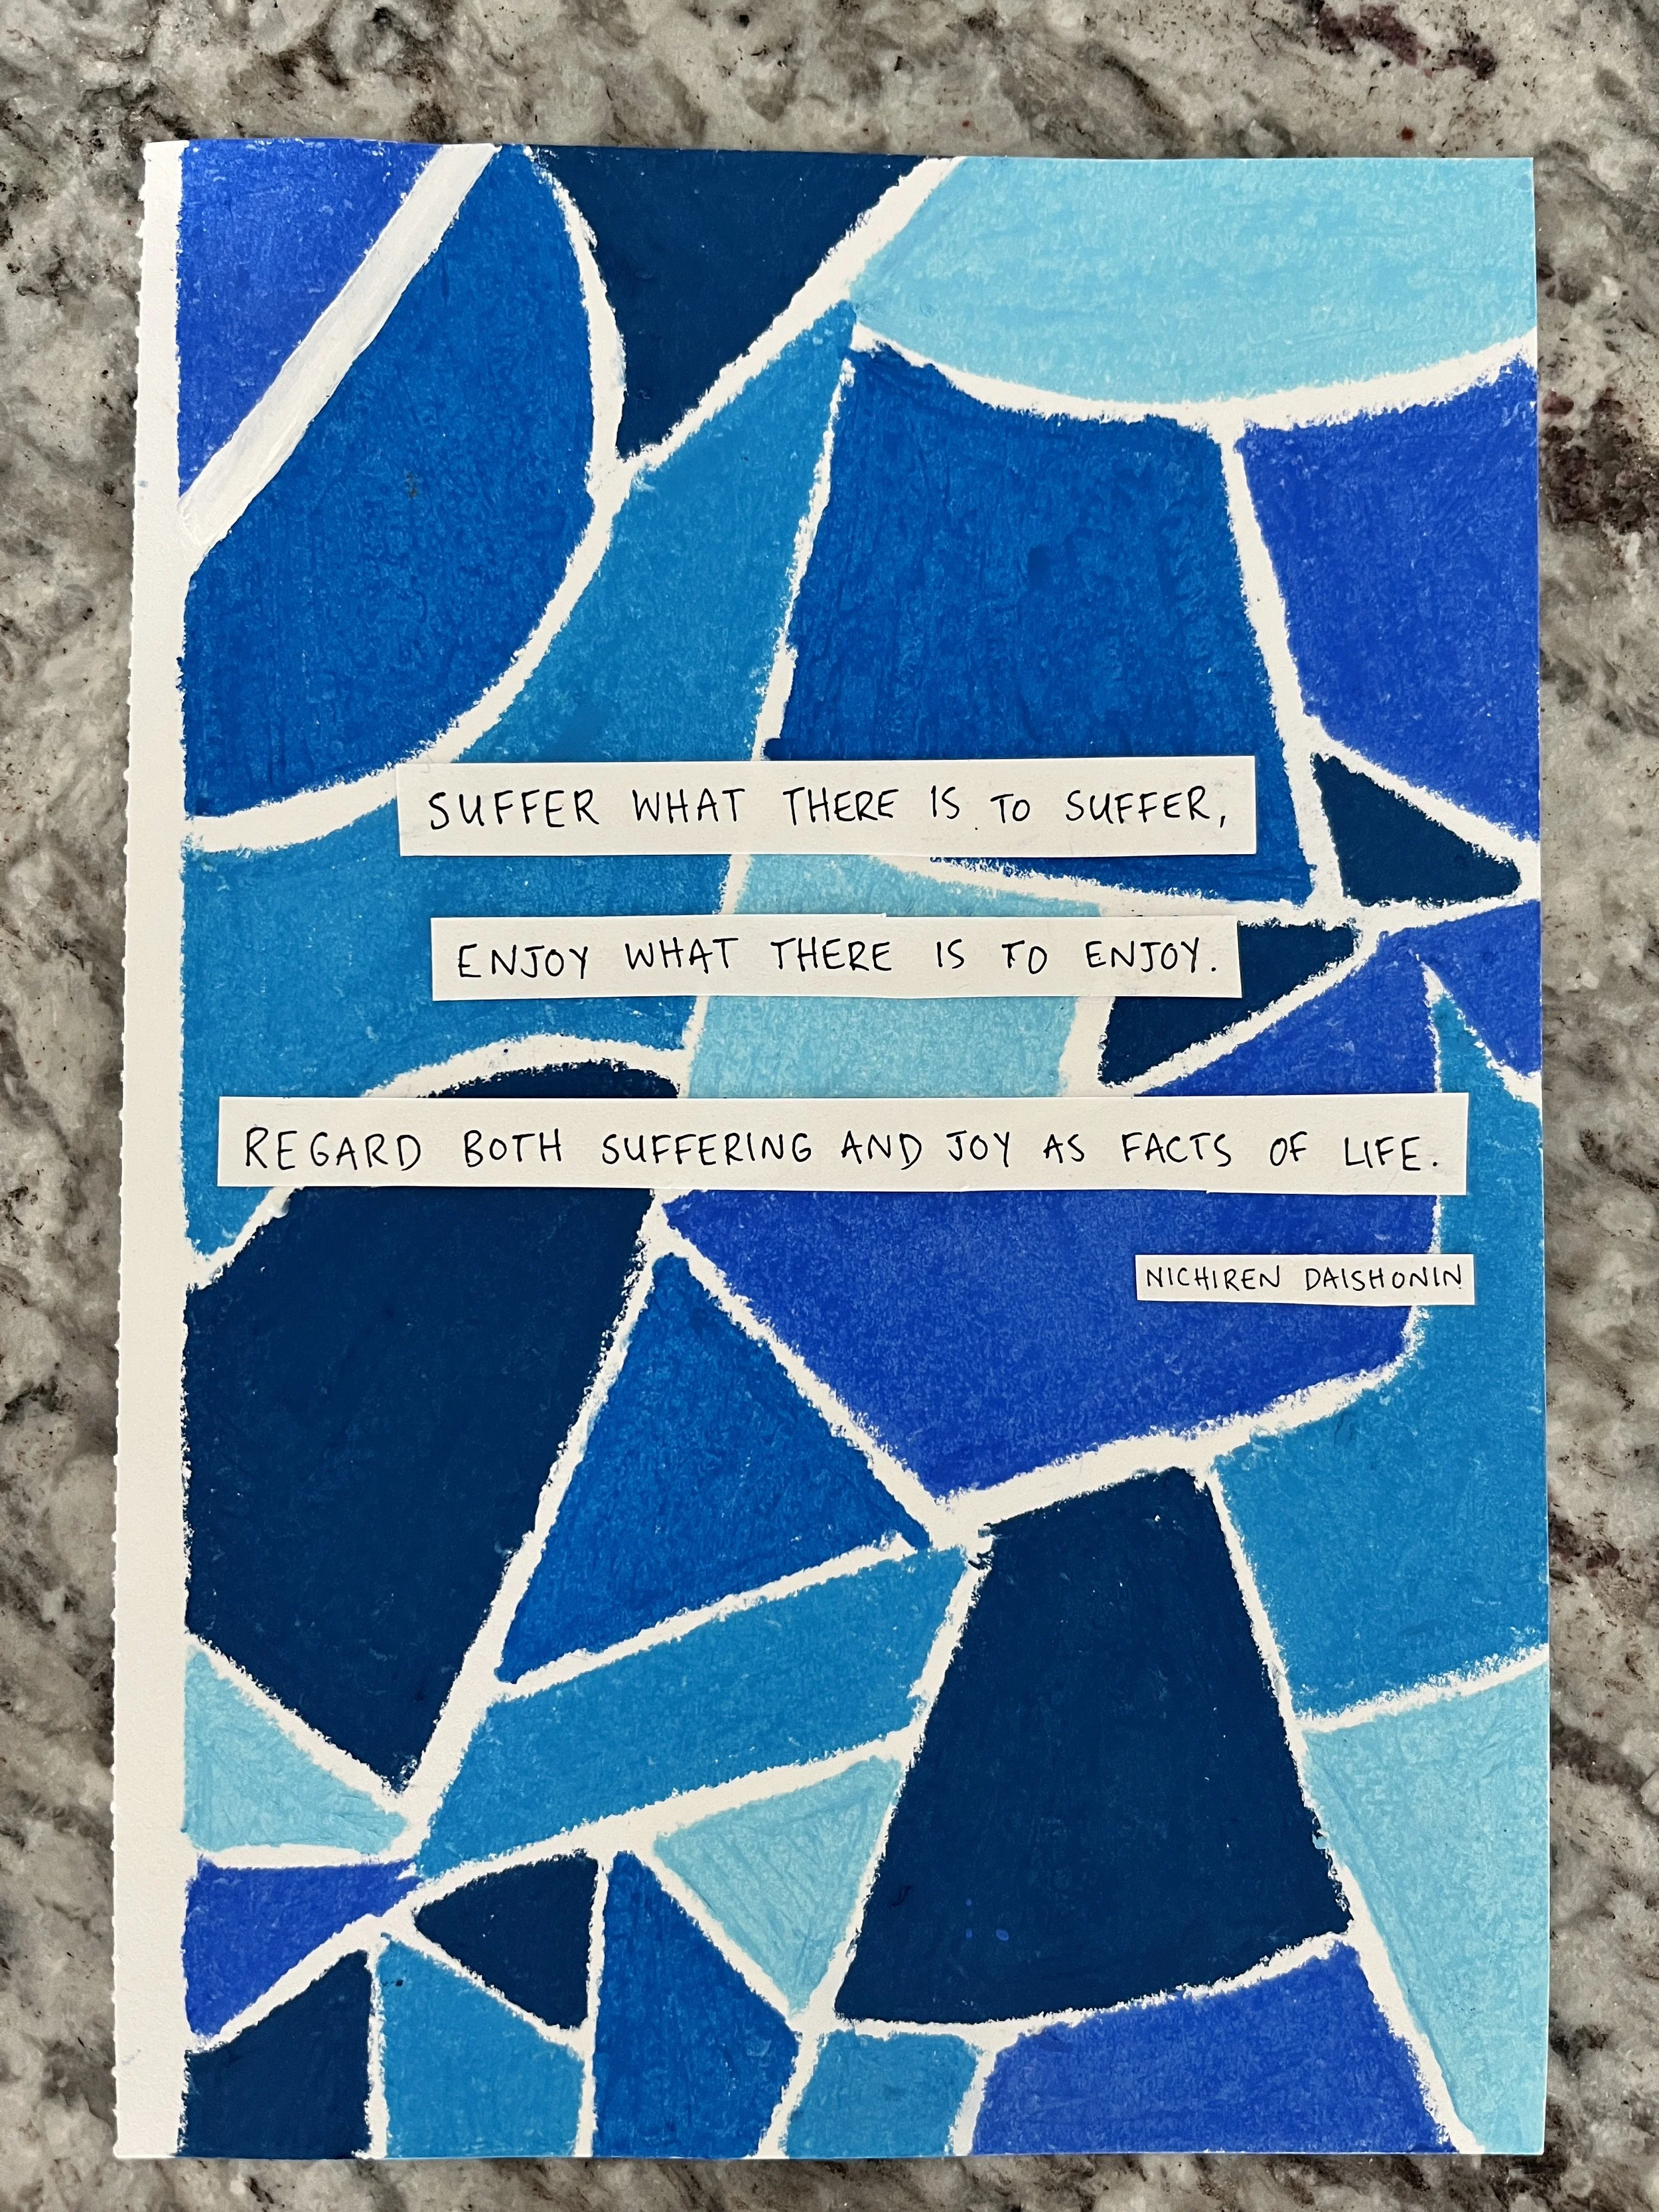 SUFFER WHAT THERE IS TO SUFFER,
ENJOY WHAT THERE IS TO ENJOY.
REGARD BOTH SUFFERING AND JOY AS FACTS OF LIFE.
NICHIREN DAISHONIN